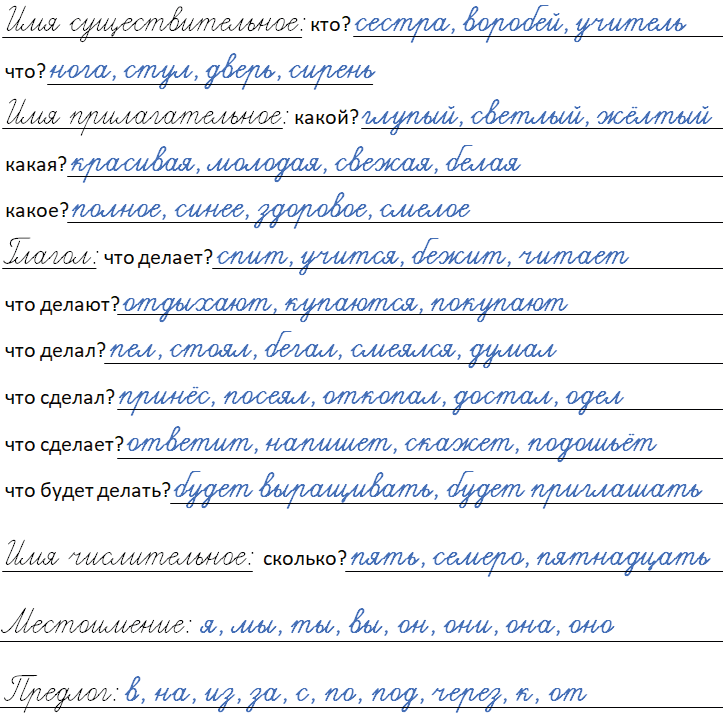 Имя существительное: кто? сестра, воробей, учитель
что? нога, стул, дверь, сирень
Имя прилагательное: какой? глупый, светлый, жёлтый
какая? красивая, молодая, свежая, белая
какое? полное, синее, здоровое, смелое
Глагол: что делает? спит, учится, бежит, читает
что делают? отдыхают, купаются, покупают
что делал? пел, стоял, бегал, смеялся, думал
что сделал? принёс, посеял, откопал, достал, одел
что сделает? ответит, напишет, скажет, подошьёт
что будет делать? будет выращивать, будет приглашать
Имя числительное: сколько? пять, семеро, пятнадцать
Местоимение: я, мы, ты, вы, он, они, она, оно
Предлог: в, на, из, за, с, по, под, через, к, от